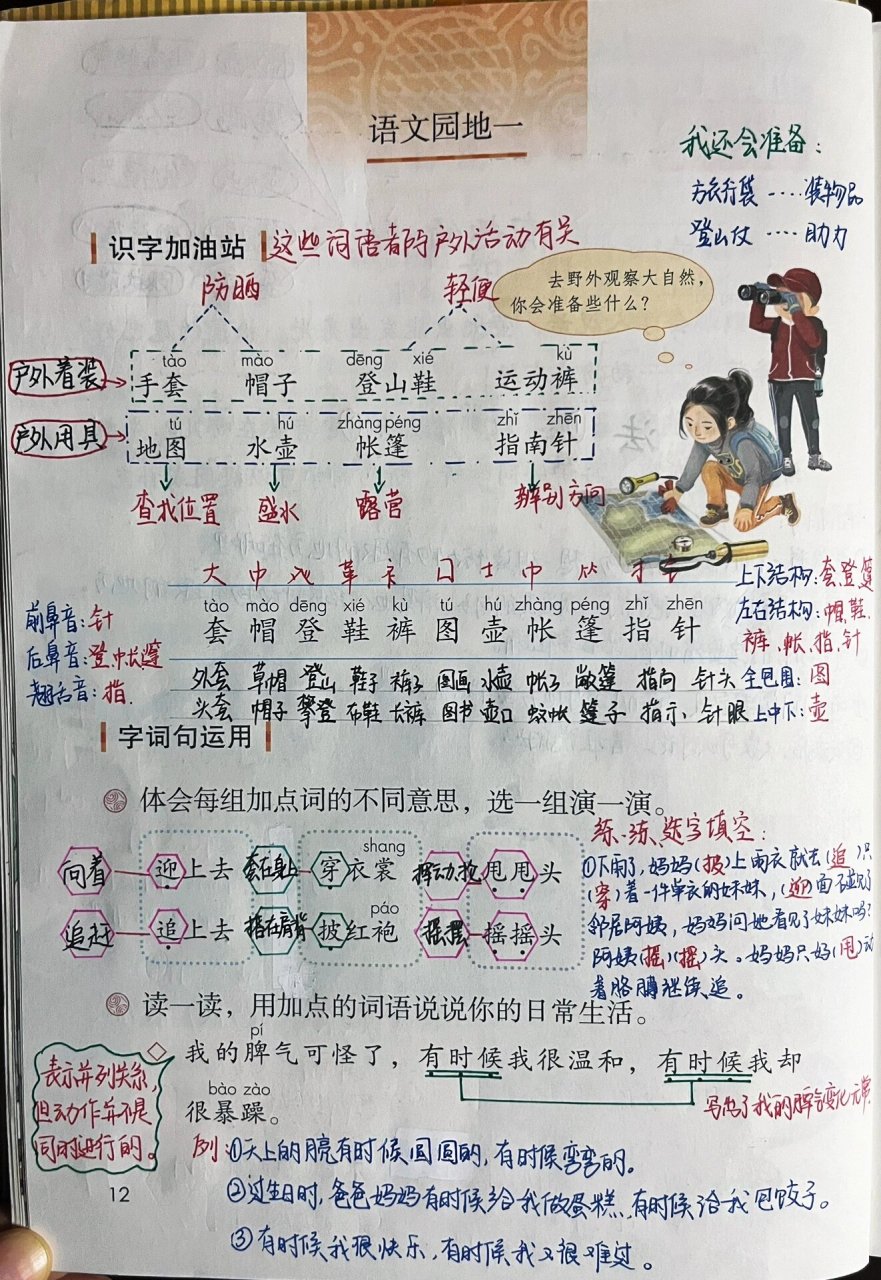 语文园地一
我还会准备：
旅行袋····装物品
登山仗····助力
识字加油站
这些词语都与户外活动有关
防晒 轻便
去野外观察大自然，
你会准备些什么？
户外着装
tào mào dēng xié kù
手套 帽子 登山鞋 运动裤
户外用具
tú hú zhàng péng zhǐ zhēn
地图 水壶 帐篷 指南针
查找位置 盛水 露营 辨别方向
大 中 癶 革 衤 囗 士 中 𥫗 扌 钅
tào mào dēng xié kù tú hú zhàng péng zhǐ zhēn
套 帽 登 鞋 裤 图 壶 帐 篷 指 针
外套 草帽 登山 鞋子 裤子 图画 水壶 帐子 敞篷 指向 针头
头套 帽子 攀登 布鞋 长裤 图书 壶口 蚊帐 篷子 指示 针眼
前鼻音：针
后鼻音：登、帐、篷
翘舌音：指、
上下结构：套、登、篷
左右结构：帽、鞋、
裤、帐、指、针
全包围：图
上中下：壶
字词句运用
体会每组加点词的不同意思，选一组演一演。
shang
向着 迎上去 套在身上 穿衣裳 挥动,抡 甩甩头
páo
追赶 追上去 搭在肩背 披红袍 摇摆 摇摇头
练一练、选字填空：
①下雨了，妈妈(披)上雨衣就去(追)只
(穿)着一件单衣的妹妹，(迎)面碰见了
邻居阿姨，妈妈问她看见了妹妹吗？
阿姨(摇)(摇)头。妈妈只好(甩)动
着胳膊继续追。
读一读，用加点的词语说说你的日常生活。
pí
我的脾气可怪了，有时候我很温和，有时候我却
bào zào
很暴躁。
写出了我的脾气变化无常
表示并列关系，
但动作并不是
同时进行的。
例：①天上的月亮有时候圆圆的，有时候弯弯的。
②过生日时，爸爸妈妈有时候给我做蛋糕，有时候给我包饺子。
③有时候我很快乐，有时候我又很难过。
12